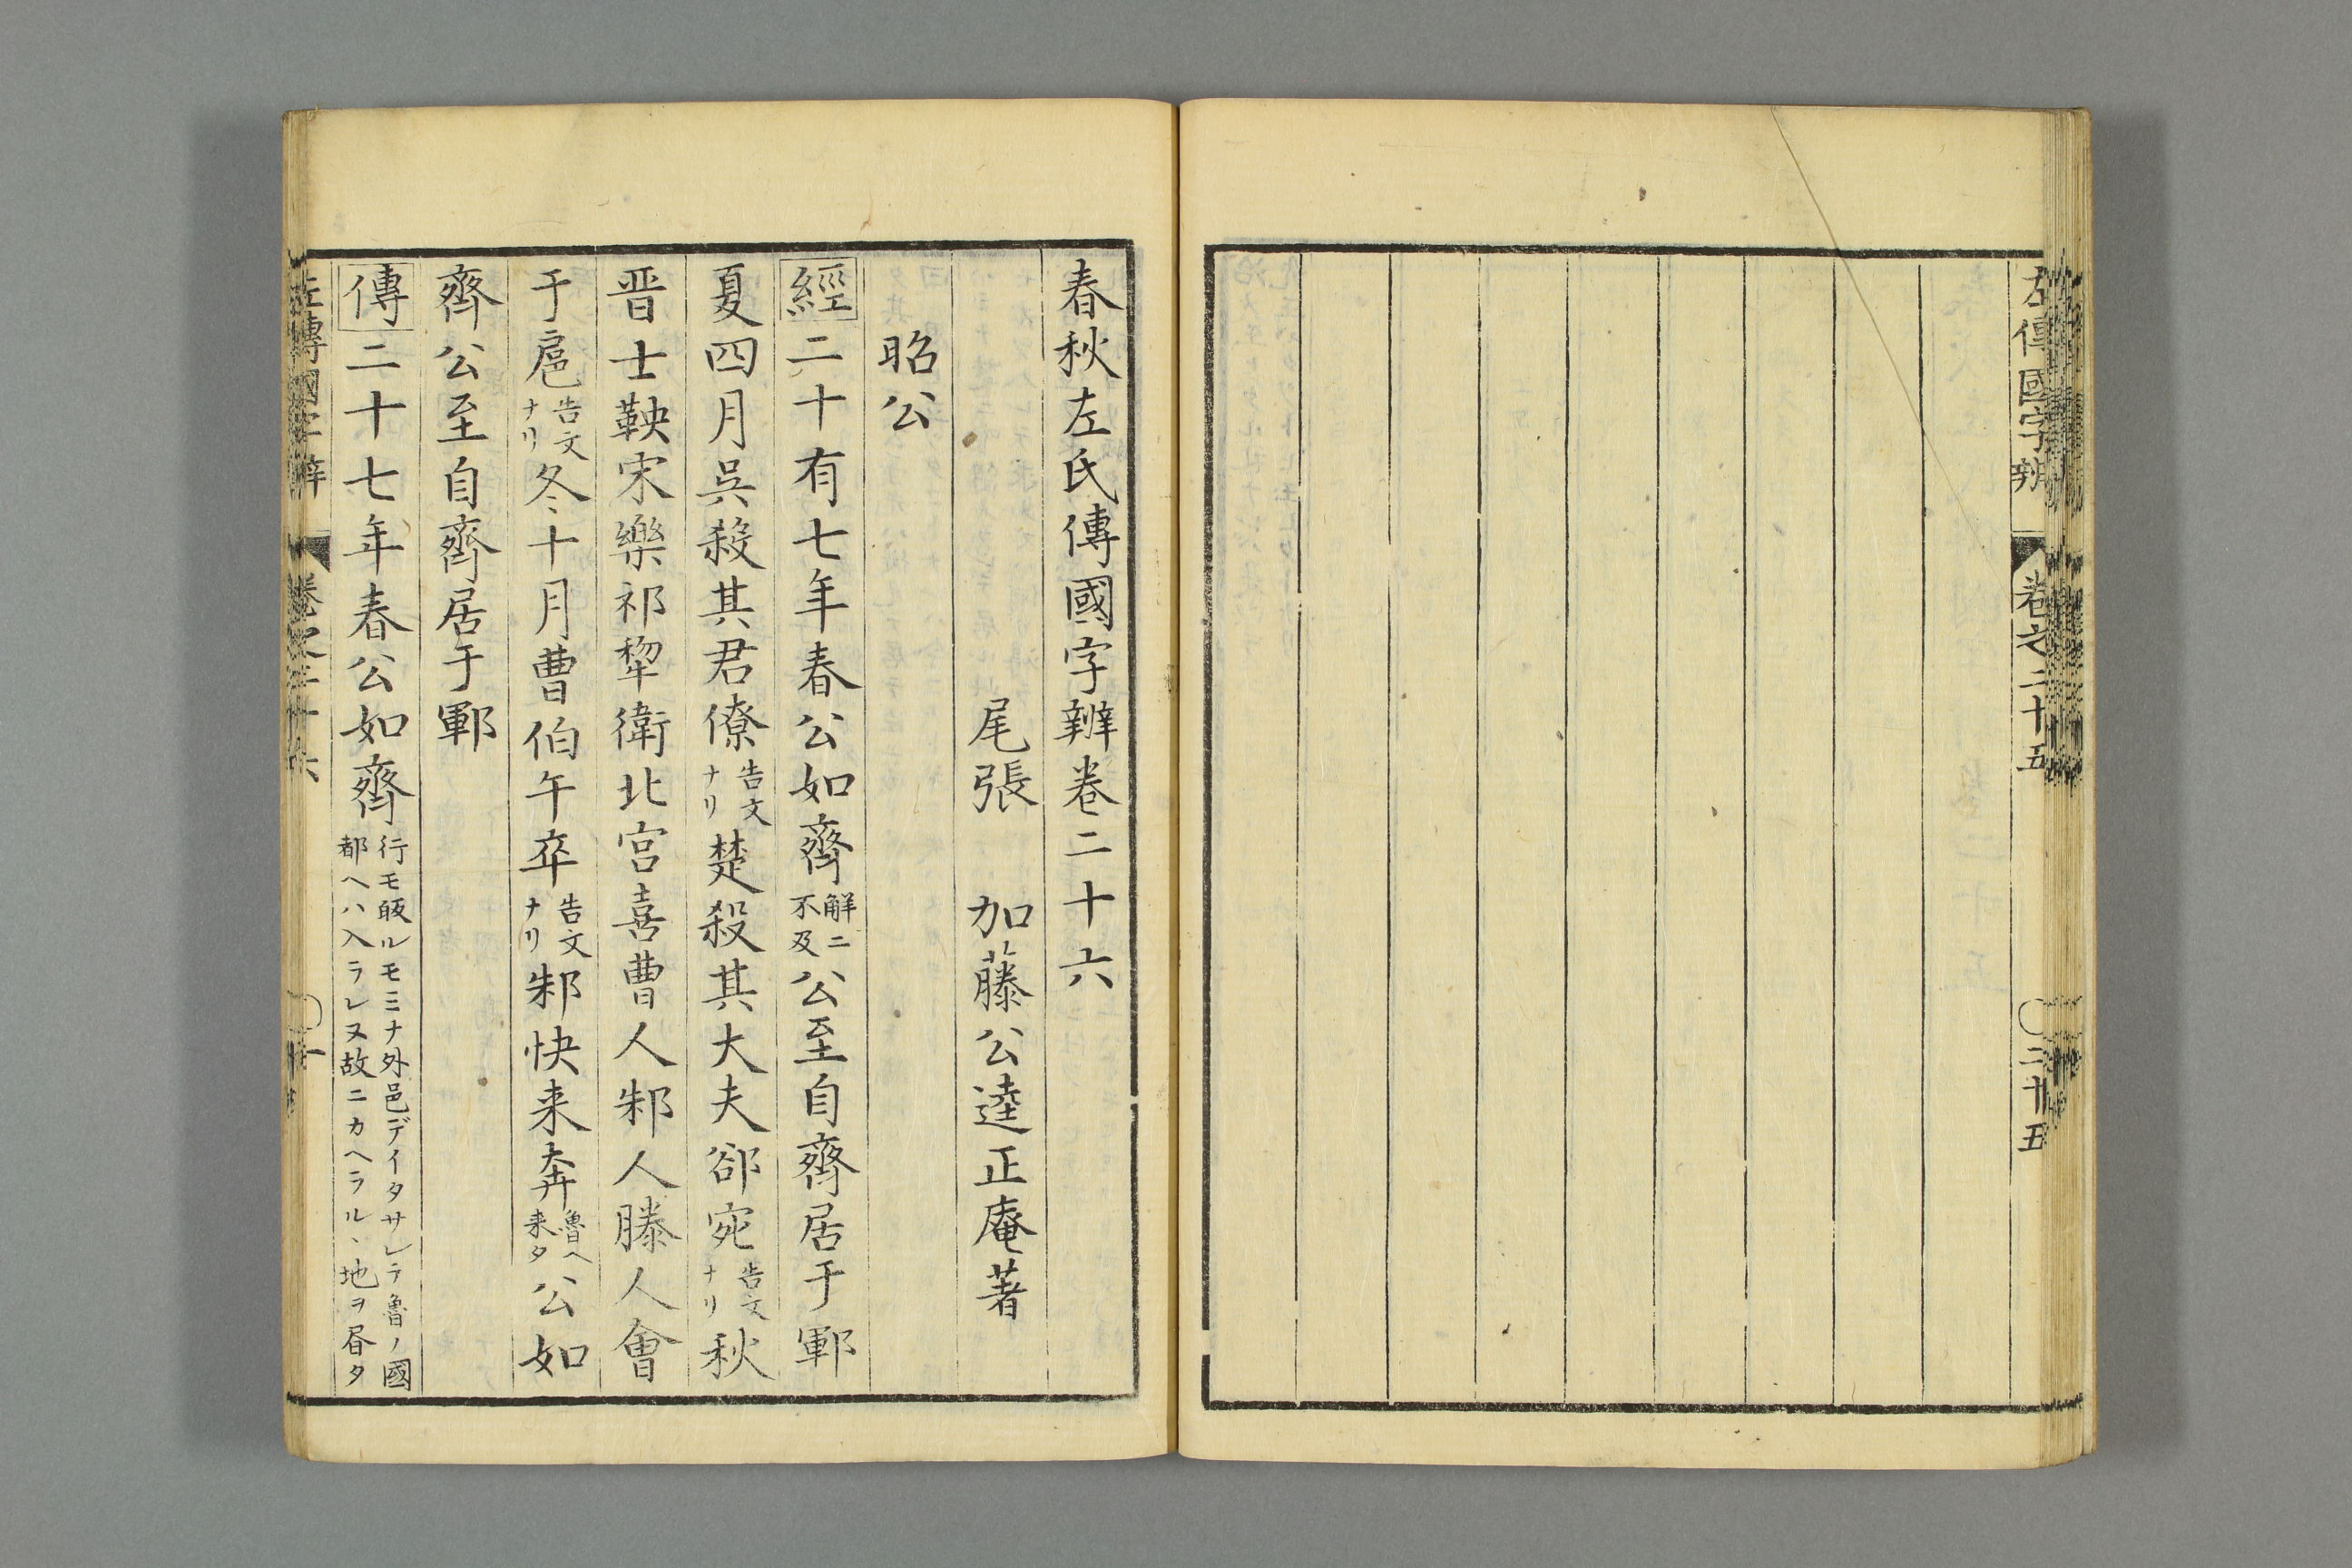 左傳國字辨 卷之二十五 〇二十五
春秋左氏傳國字辨卷二十六
尾張 加藤公逵正庵著
昭公
經二十有七年春公如齊解ニ不及公至自齊居于鄆
夏四月呉殺其君僚告文ナリ楚殺其大夫郤宛告文ナリ秋
晋士鞅宋樂祁犂衛北宮喜曹人邾人滕人會
于扈告文ナリ冬十月曹伯午卒告文ナリ邾快来奔魯ヘ来タ公如
齊公至自齊居于鄆
傳二十七年春公如齊行モ皈ルモミナ外邑デイタサレテ魯ノ國
都ヘハ入ラレヌ故ニカヘラルヽ地ヲ昏タ
左傳國字辨 卷之二十六 〇一